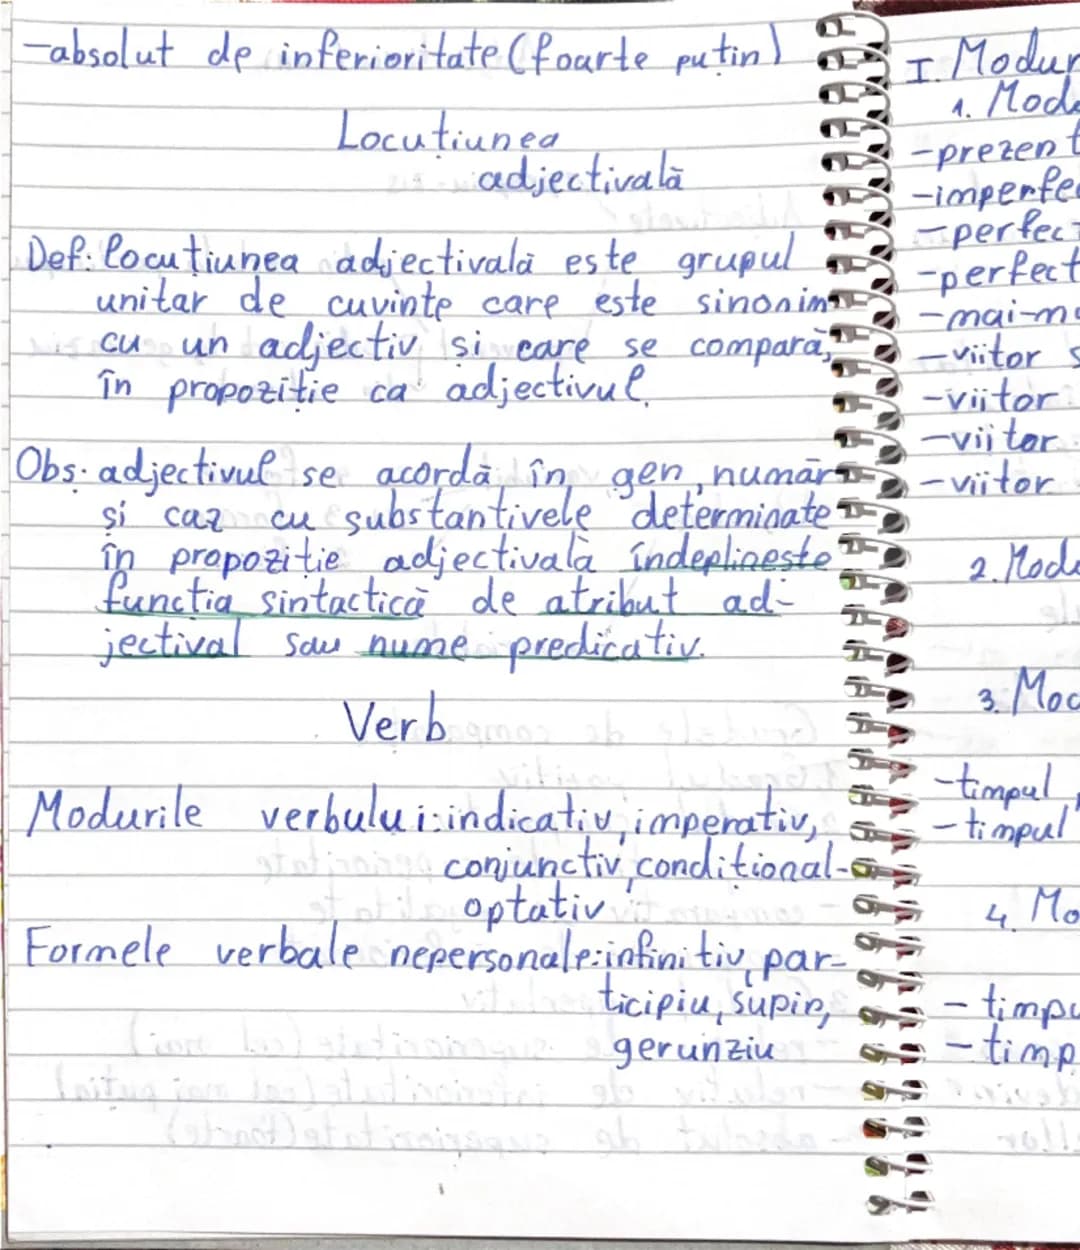 -absolut de inferioritate (foarte puțin)
Locuțiunea
adjectivală
Def: locuțiunea adjectivală este grupul
unitar de cuvinte care este sinonim
cu un adjectiv și care se compară,
în propoziție ca adjectivul.
Obs: adjectivul se acordă în gen, număr
și caz cu substantivele determinate
în propoziție adjectivală îndeplinește
funcția sintactică de atribut ad-
jectival sau nume predicativ.
Verb
Modurile verbului: indicativ, imperativ,
conjunctiv, condițional-
optativ
Formele verbale nepersonale: infinitiv, par-
ticipiu, supin,
gerunziu
I. Modur
1. Mod
-prezent
-imperfe
-perfec
-perfect
-mai-m
-viitor s
-viitor
-viitor
-viitor
2. Mod
3. Mod
-timpul
-timpul
4. Mo
-timpu
-timp